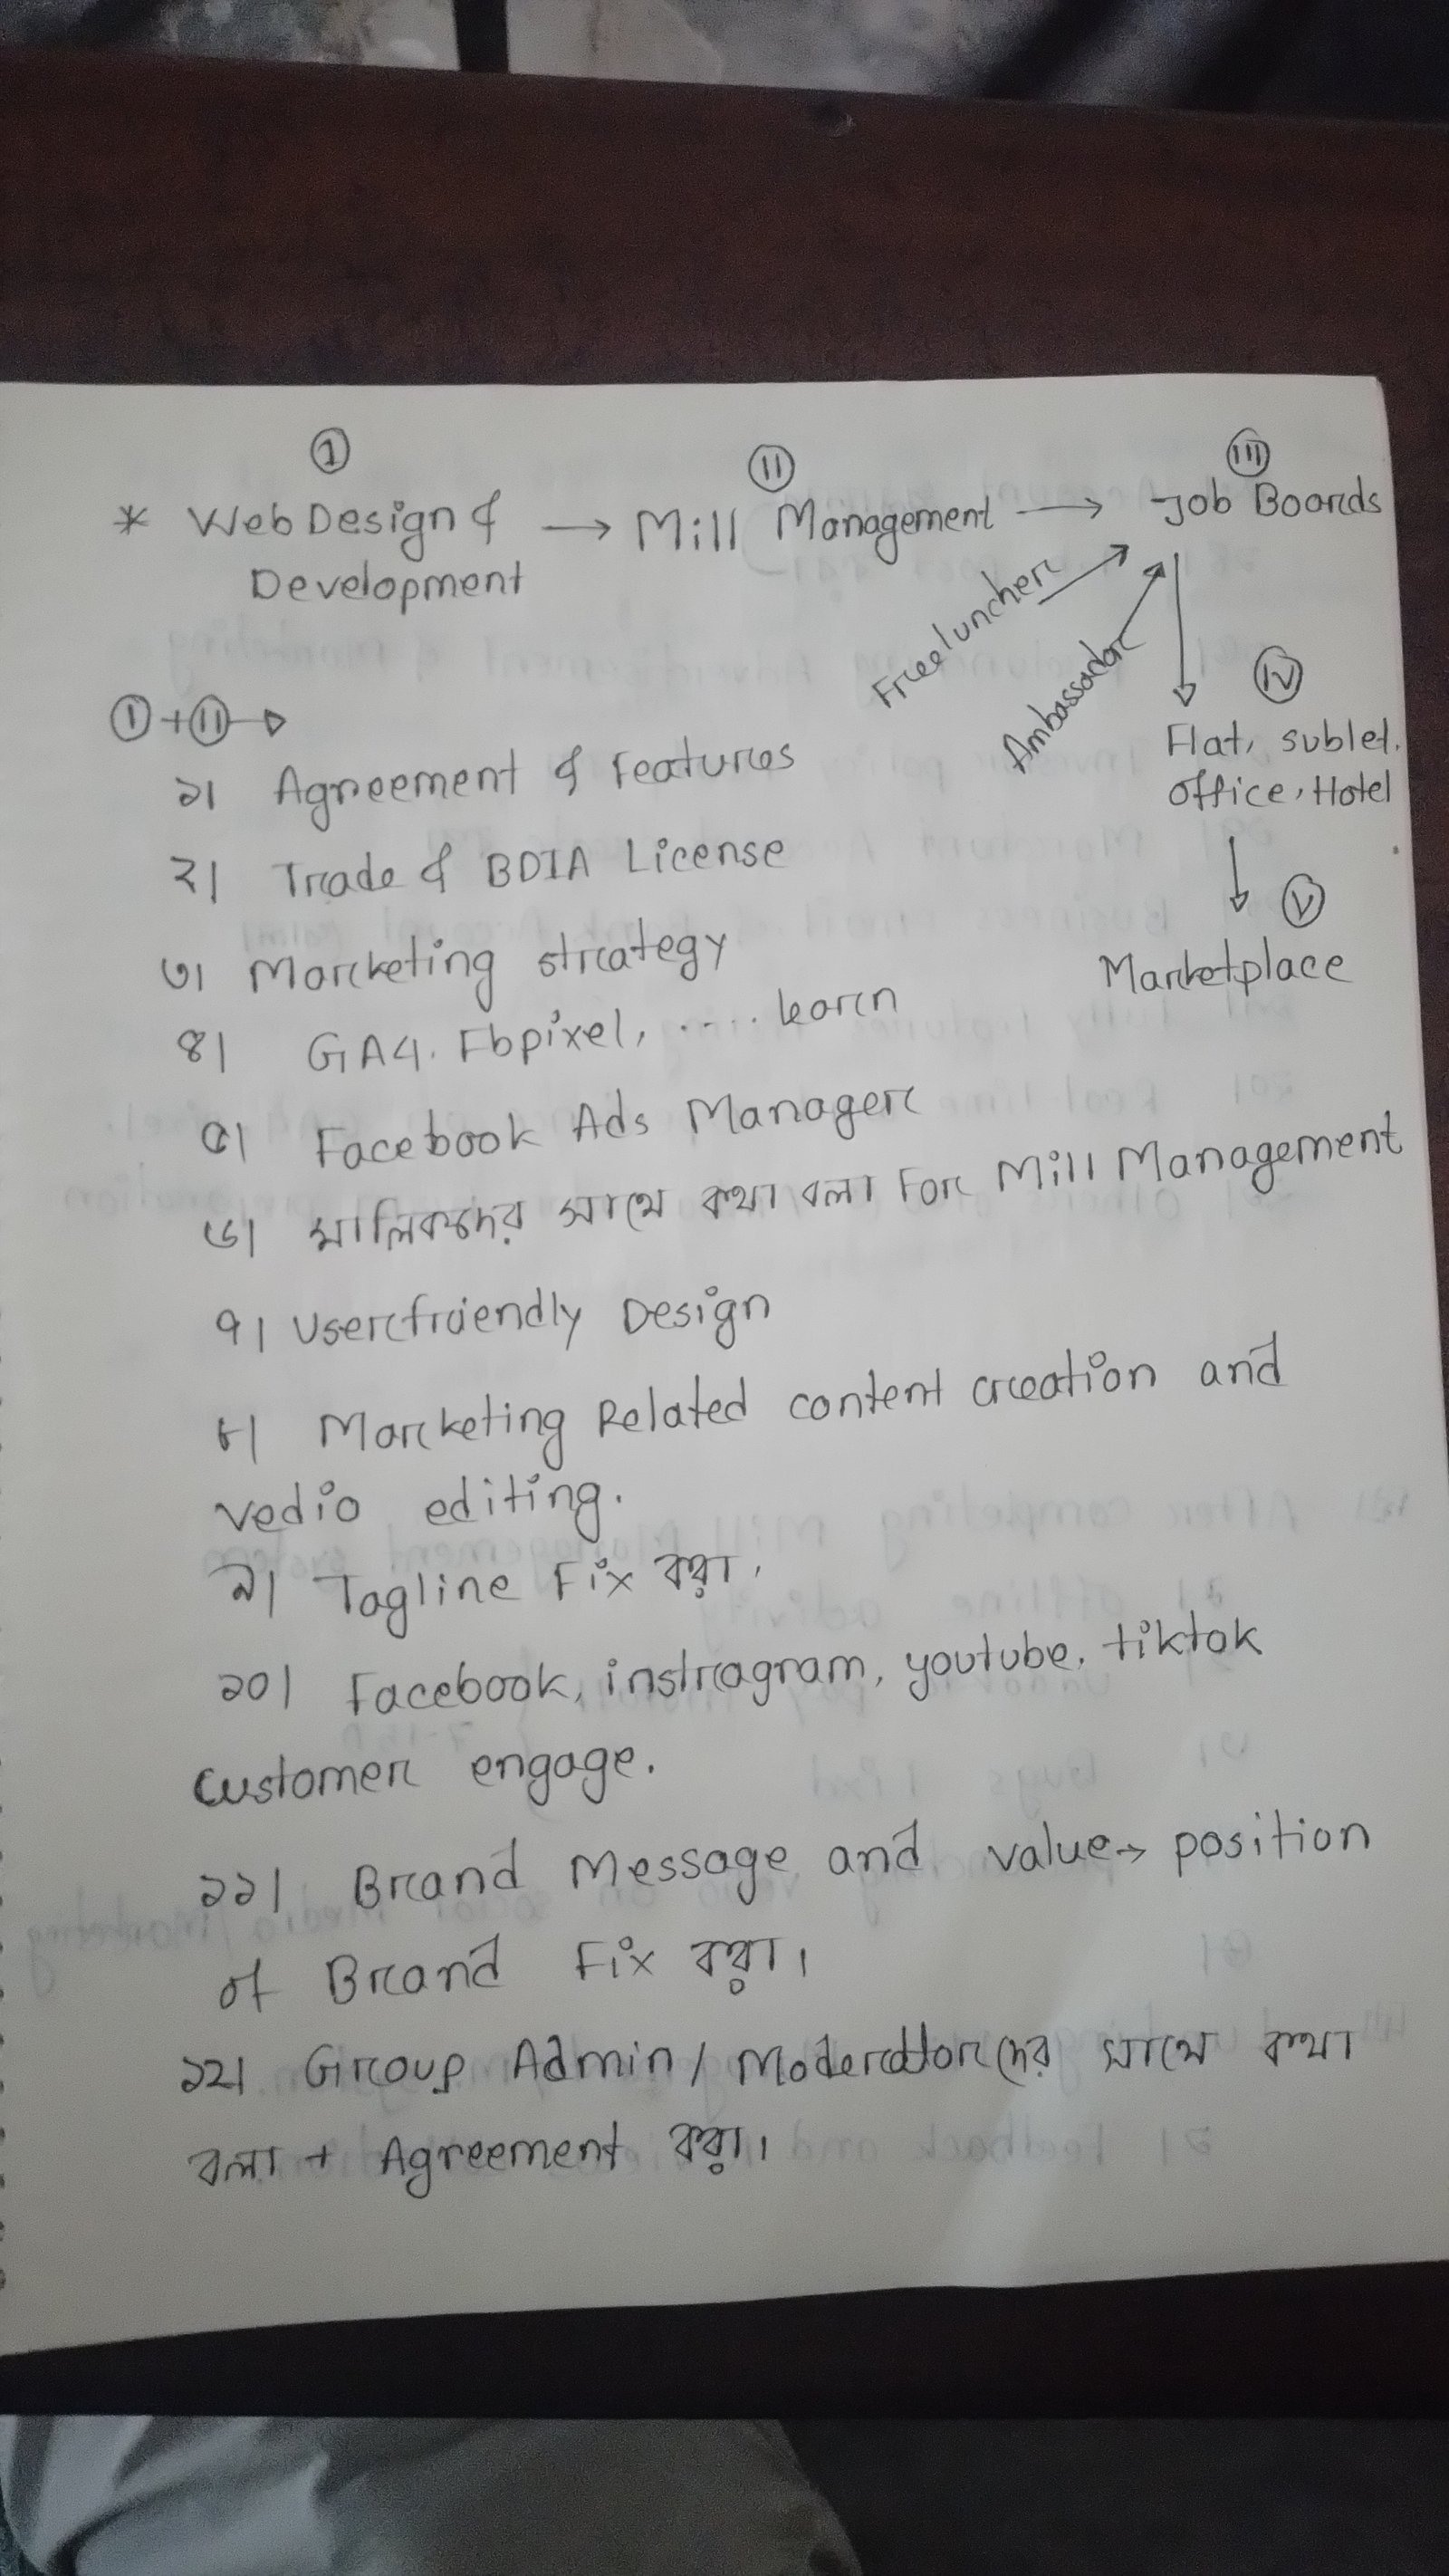 ① ⑪ ⑪⑪
* Web Design & → Mill Management → Job Boards
Development
Freeluncher →
Ambassador
①+⑪→
ⅠⅤ
Flat, sublet,
office, Hotel
Ⅴ
Marketplace
১। Agreement & Features
২। Trade & BDIA License
৩। Marketing strategy
৪। GA4, Fbpixel, ..... learn
৫। Facebook Ads Manager
৬। মালিকদের সাথে কথা বলা For Mill Management
৭। Userfriendly Design
৮। Marketing Related content creation and
vedio editing.
৯। Tagline Fix করা,
১০। Facebook, instragram, youtube, tiktok
customer engage.
১১। Brand Message and value → position
of Brand Fix করা।
১২। Group Admin/Moderatorদের সাথে কথা
বলা + Agreement করা।